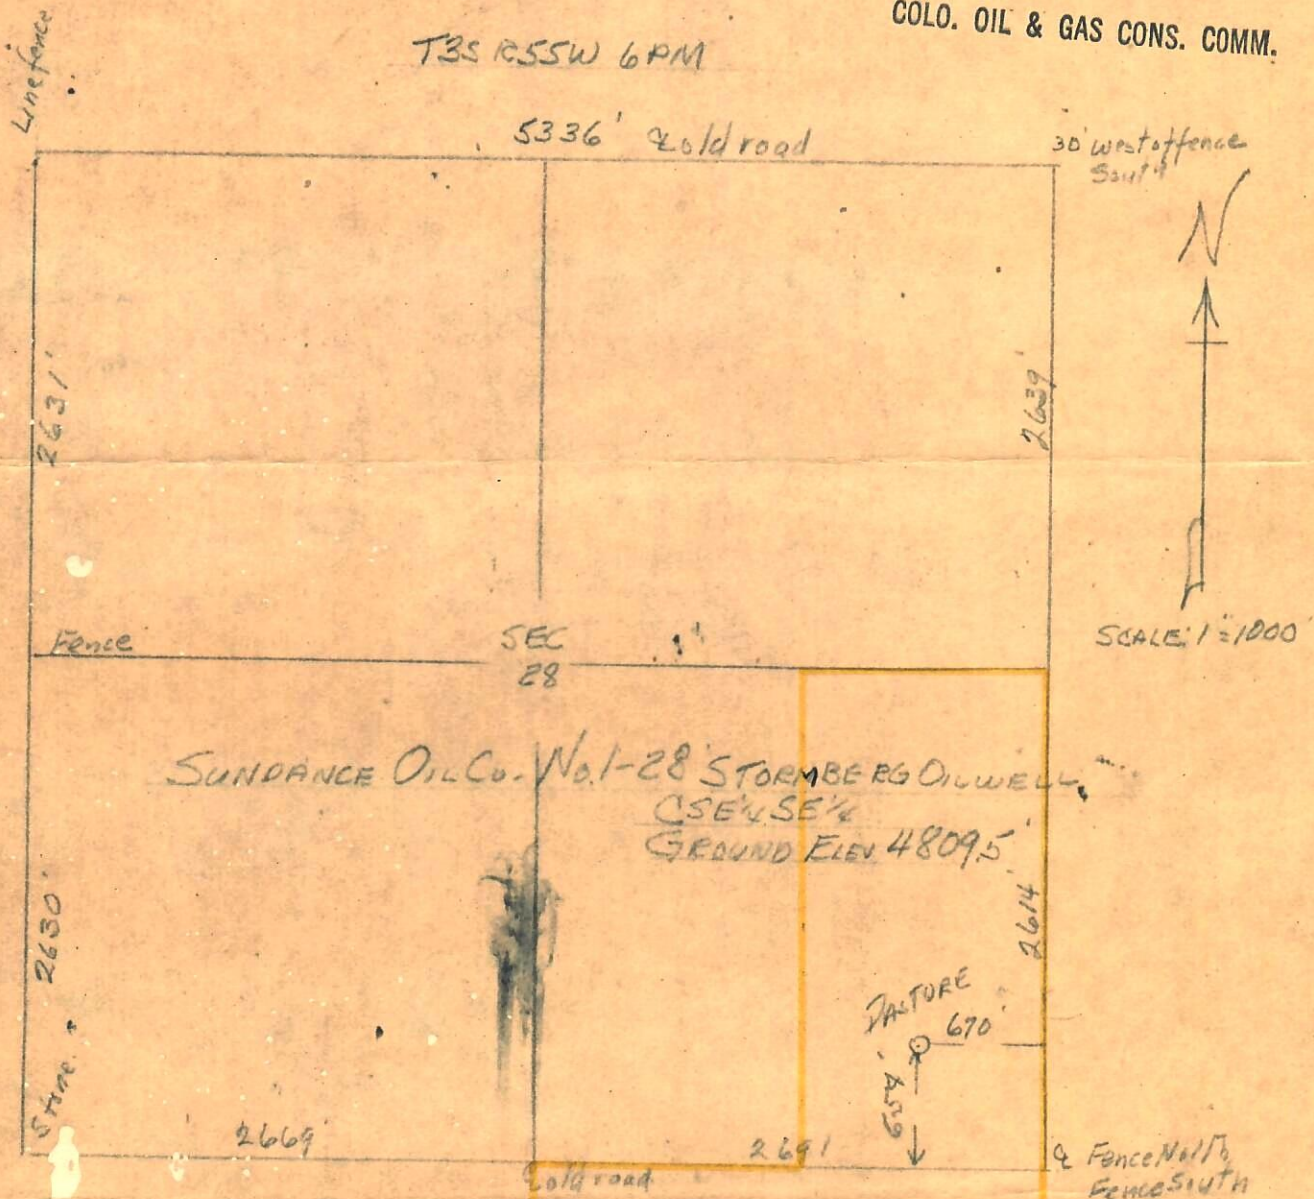 COLO. OIL & GAS CONS. COMM.
Line fence
T3S R55W 6PM
5336' ℄ old road
30' west of fence
South
N
2631'
2639'
SCALE: 1"=1000'
Fence
SEC
28
SUNDANCE OIL CO. No. 1-28 STORMBERG OILWELL
CSE¼SE¼
GROUND ELEV 4809.5'
2630'
2614'
PASTURE
670'
Stone
2669'
2691
℄ old road
℄ Fence North
Fence South